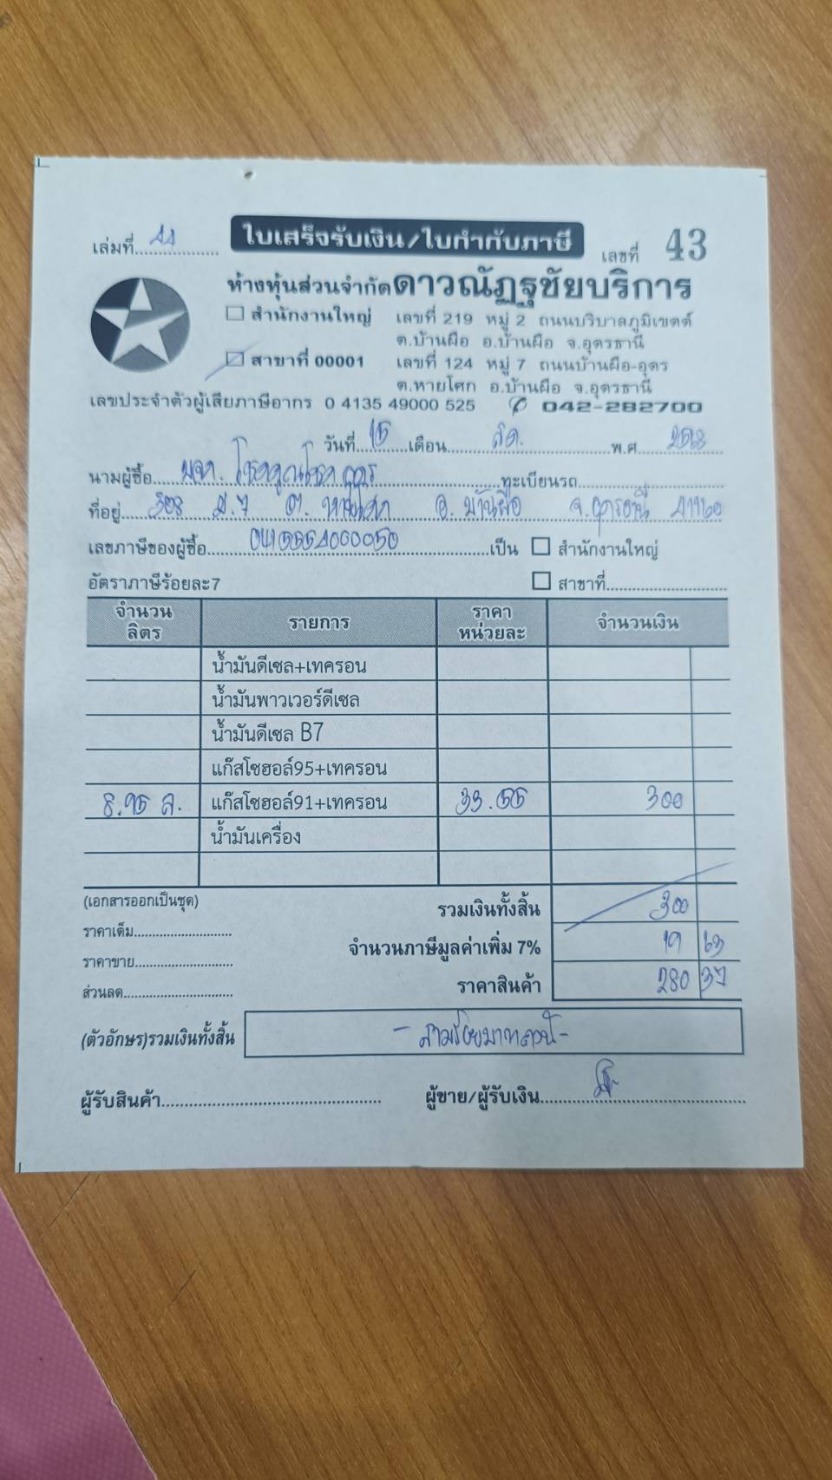 เล่มที่ 44 ใบเสร็จรับเงิน/ใบกำกับภาษี เลขที่ 43
ห้างหุ้นส่วนจำกัดดาวณัฏฐชัยบริการ
สำนักงานใหญ่ เลขที่ 219 หมู่ 2 ถนนบริบาลภูมิเขตต์
ต.บ้านผือ อ.บ้านผือ จ.อุดรธานี
สาขาที่ 00001 เลขที่ 124 หมู่ 7 ถนนบ้านผือ-อุดร
ต.หายโศก อ.บ้านผือ จ.อุดรธานี
เลขประจำตัวผู้เสียภาษีอากร 0 4135 49000 525 042-282700
วันที่ 15 เดือน พ.ศ 2568
นามผู้ซื้อ ทะเบียนรถ
ที่อยู่ 308 ม.7 ต. หายโศก อ. บ้านผือ จ.อุดรธานี 41160
เลขภาษีของผู้ซื้อ เป็น สำนักงานใหญ่
อัตราภาษีร้อยละ7 สาขาที่
จำนวน ลิตร รายการ ราคา หน่วยละ จำนวนเงิน
น้ำมันดีเซล+เทครอน
น้ำมันพาวเวอร์ดีเซล
น้ำมันดีเซล B7
แก๊สโซฮอล์95+เทครอน
8.95 ล. แก๊สโซฮอล์91+เทครอน 33.55 300
น้ำมันเครื่อง
(เอกสารออกเป็นชุด) รวมเงินทั้งสิ้น 300
ราคาเต็ม
จำนวนภาษีมูลค่าเพิ่ม 7% 19 63
ราคาขาย
ราคาสินค้า 280 37
ส่วนลด
(ตัวอักษร)รวมเงินทั้งสิ้น - สามร้อยบาทถ้วน -
ผู้รับสินค้า ผู้ขาย/ผู้รับเงิน